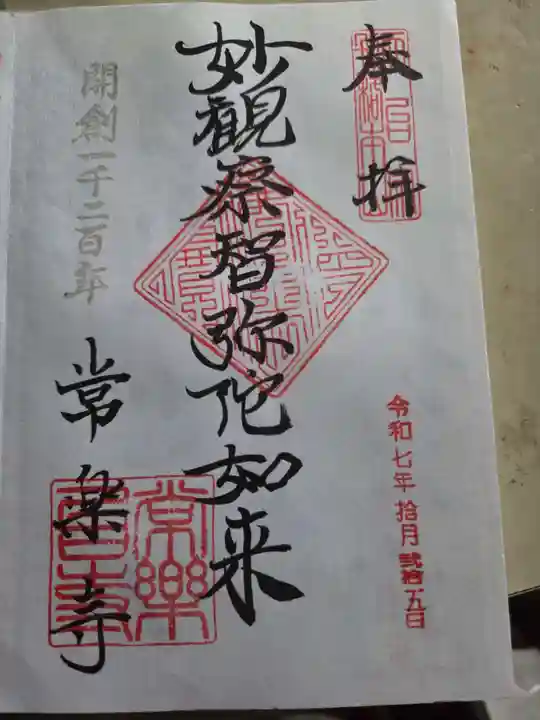 奉拝
令和七年 拾月 弐拾五日
妙観察智弥陀如来
開創一千二百年
常楽寺
常樂